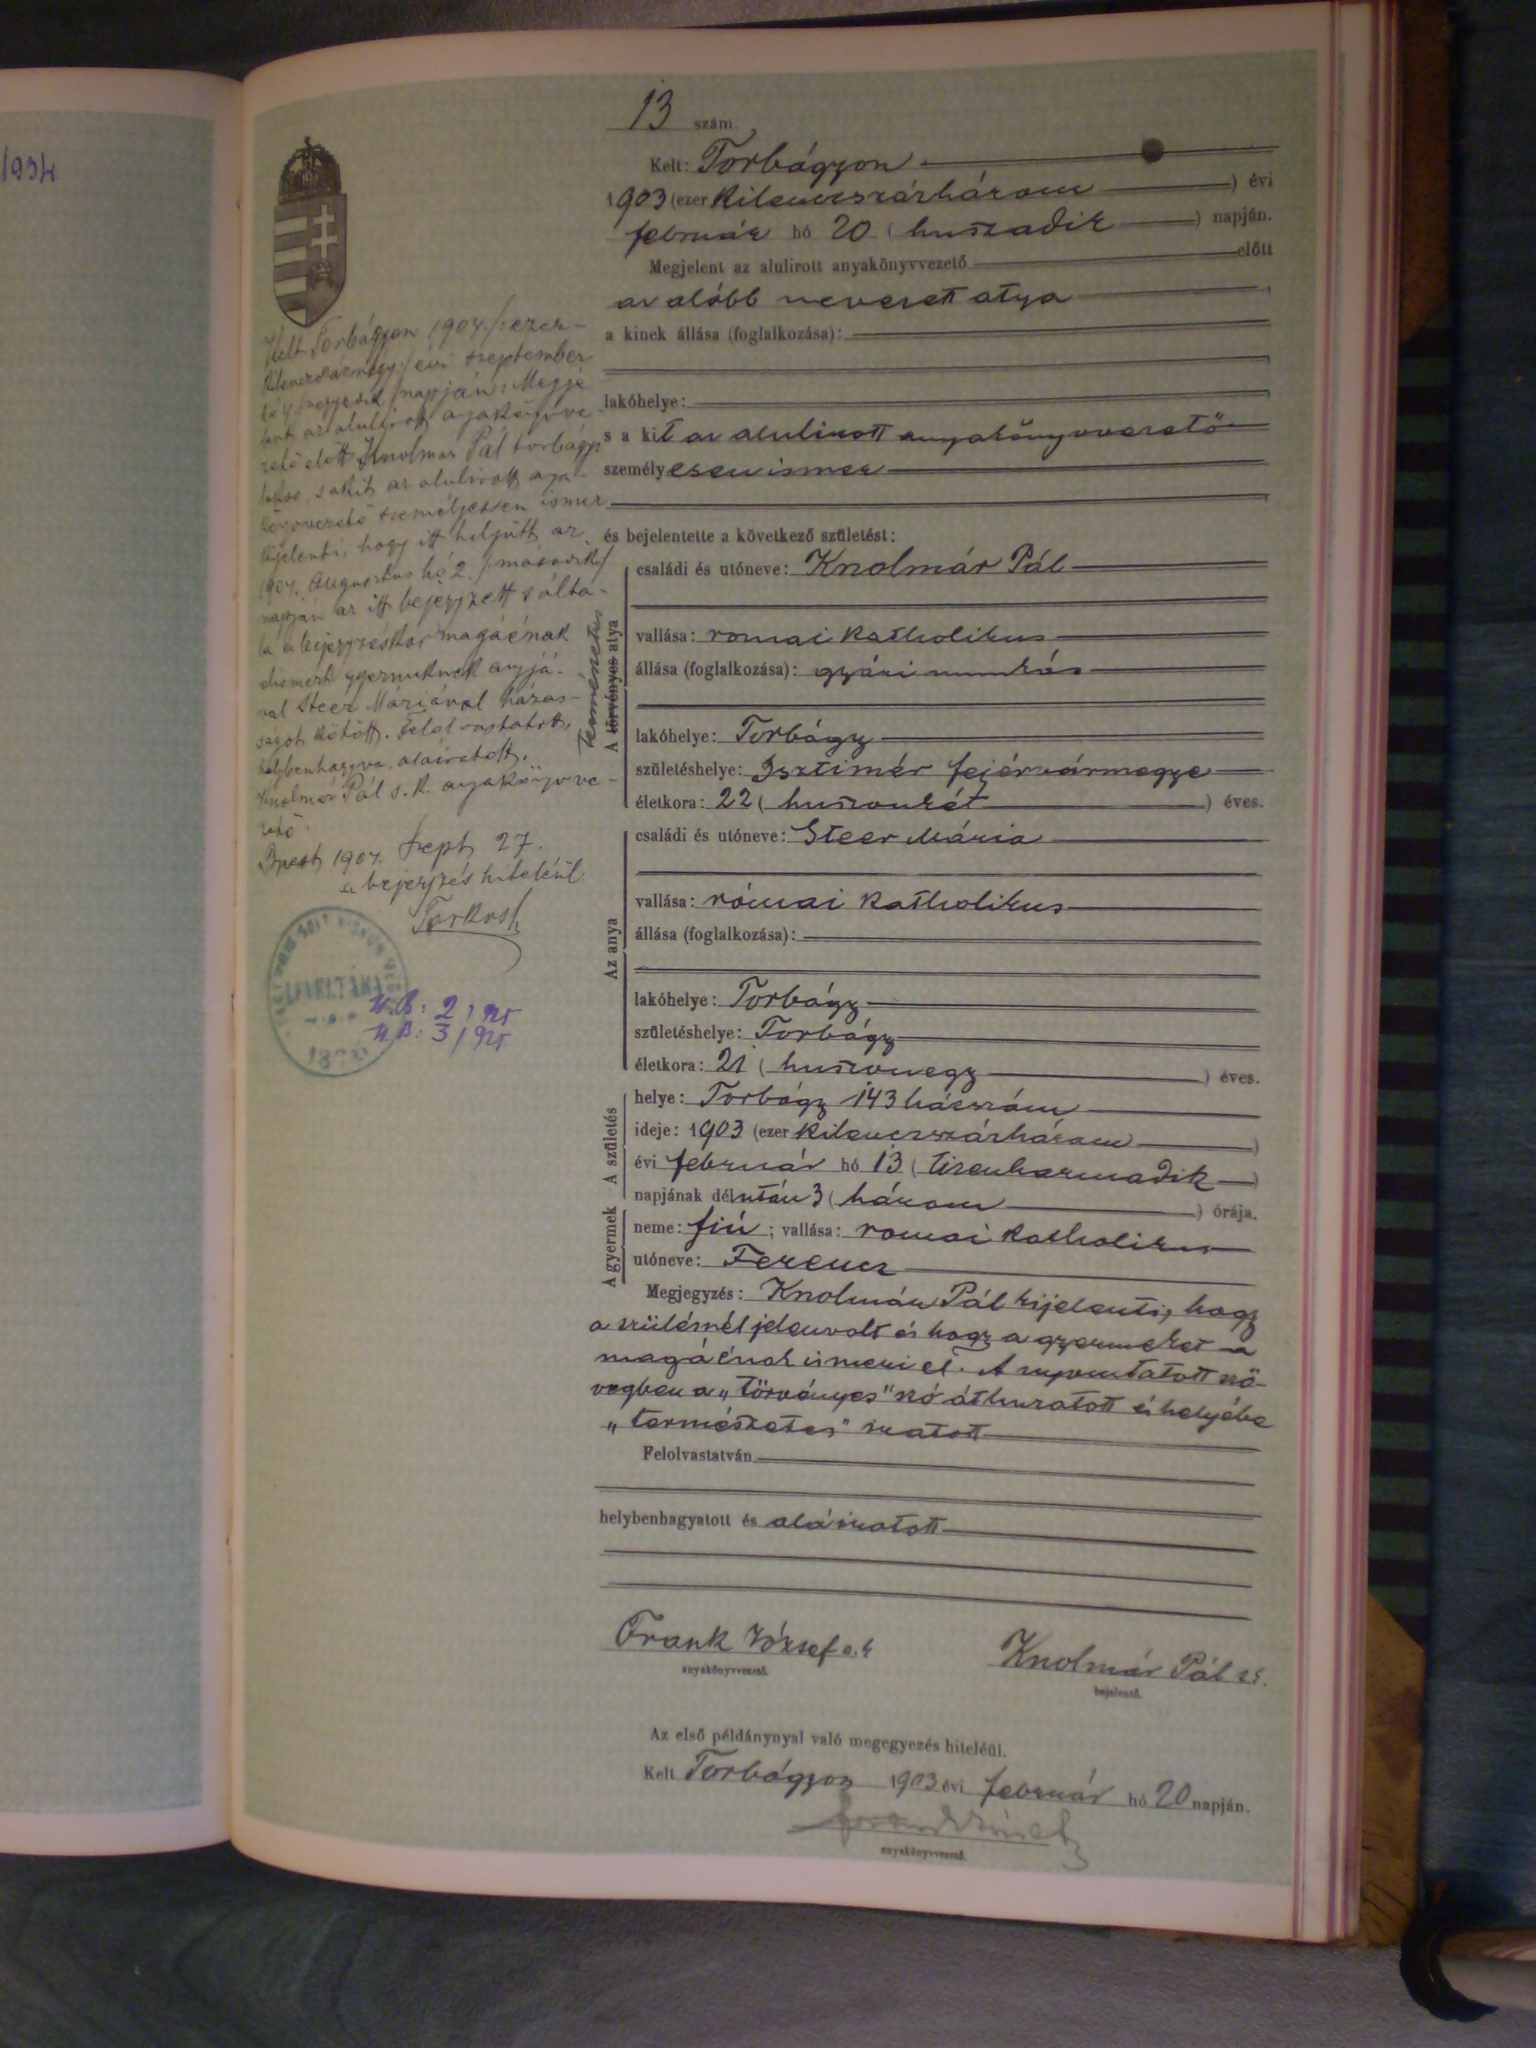 1934
13 szám.
Kelt: Torbágyon
1903 (ezer kilenczszázhárom) évi
február hó 20 (huszadik) napján.
Megjelent az alulirott anyakönyvvezető előtt
az alább nevezett atya
a kinek állása (foglalkozása):
lakóhelye:
s a kit az alulirott anyakönyvvezető
személyesen ismer
és bejelentette a következő születést:
A törvényes atya
természetes
családi és utóneve: Knolmár Pál
vallása: romai katholikus
állása (foglalkozása): gyári munkás
lakóhelye: Torbágy
születéshelye: Isztimér fejérvármegye
életkora: 22 (huszonkét) éves.
Az anya
családi és utóneve: Steer Mária
vallása: római katholikus
állása (foglalkozása):
lakóhelye: Torbágy
születéshelye: Torbágy
életkora: 21 (huszonegy) éves.
A születés
helye: Torbágy 143 házszám
ideje: 1903 (ezer kilenczszázhárom)
évi február hó 13 (tizenharmadik)
napjának délután 3 (három) órája.
A gyermek
neme: fiú; vallása: romai katholikus
utóneve: Ferencz
Megjegyzés: Knolmár Pál kijelenti, hogy
a szülésnél jelenvolt és hogy a gyermeket a
magáénak ismeri el. A nyomtatott szö-
vegben a „törvényes" szó áthuzatott és helyébe
„természetes" iratott
Felolvastatván
helybenhagyatott és aláiratott
Frank József s.k.
anyakönyvvezető.
Knolmár Pál s.k.
bejelentő.
Az első példánynyal való megegyezés hiteléül.
Kelt Torbágyon 1903 évi február hó 20 napján.
anyakönyvvezető.
Kelt Torbágyon 1904. /: ezer-
kilenczszáznégy :/ évi szeptember
hó 4 /negyedik/ napján: Megje
lent az alulirott anyakönyvve-
zető előtt Knolmár Pál torbágyi
lakos, s akit az alulirott anya-
könyvvezető személyessen ismer
kijelenti, hogy itt
1904. Augusztus hó 2. /:második:/
napján az itt bejegyzett s álta-
la a bejegyzéskor magáénak
elismert gyermeknek anyjá-
val Steer Máriával házas-
ságot kötött. Felolvastatott,
helybenhagyva, aláiratott.
Knolmár Pál s.k. anyakönyvve-
zető.
Bpest, 1904. Szept 27.
a bejegyzés hiteléül.
LEVÉLTÁRA
U.B: 2/925
U.B: 3/925.